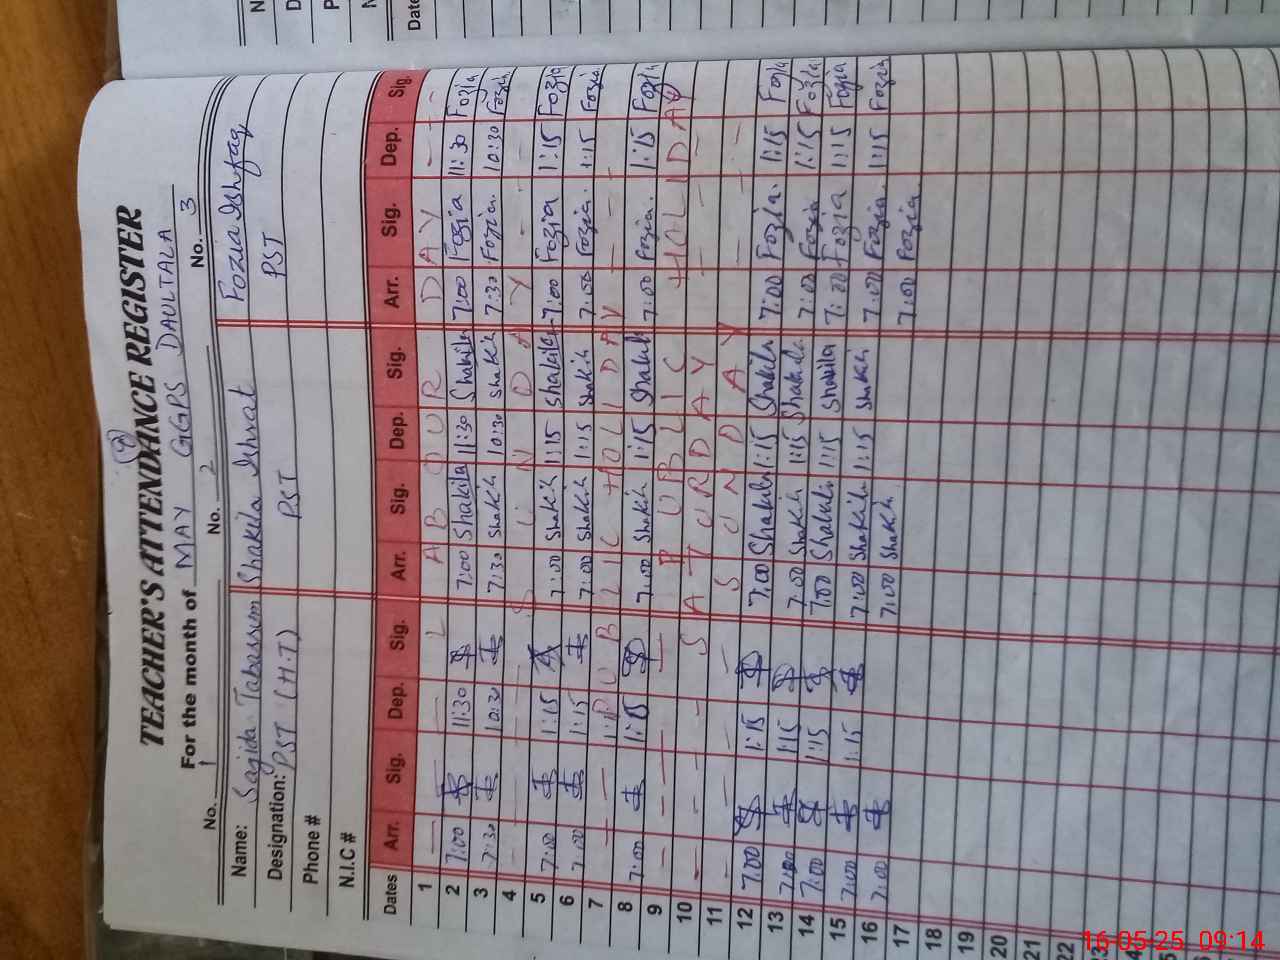 (9)
TEACHER'S ATTENDANCE REGISTER
For the month of MAY GGPS DAULTALA
No. 1 No. 2 No. 3
Name: Sajida Tabassem Shakila Ishrat Fozia Ishfaq
Designation: PST (H.T) PST PST
Phone #
N.I.C #
Dates Arr. Sig. Dep. Sig. Arr. Sig. Dep. Sig. Arr. Sig. Dep. Sig.
1 L A B O U R D A Y
2 7:00 11:30 7:00 Shakila 11:30 Shakila 7:00 Fozia 11:30 Fozia
3 7:30 10:30 7:30 Shakila 10:30 Shakila 7:30 Fozia 10:30 Fozia
4 S U N D A Y
5 7:00 1:15 7:00 Shakila 1:15 Shakila 7:00 Fozia 1:15 Fozia
6 7:00 1:15 7:00 Shakila 1:15 Shakila 7:00 Fozia 1:15 Fozia
7 PUBLIC HOLIDAY
8 7:00 1:15 7:00 Shakila 1:15 Shakila 7:00 Fozia. 1:15 Fozia
9 PUBLIC HOLIDAY
10 SATURDAY
11 SUNDAY
12 7:00 1:15 7:00 Shakila 1:15 Shakila 7:00 Fozia. 1:15 Fozia
13 7:00 1:15 7:00 Shakila 1:15 Shakila 7:00 Fozia 1:15 Fozia
14 7:00 1:15 7:00 Shakila 1:15 Shakila 7:00 Fozia 1:15 Fozia
15 7:00 1:15 7:00 Shakila 1:15 Shakila 7:00 Fozia 1:15 Fozia
16 7:00 7:00 Shakila 7:00 Fozia
17
18
19
20
21
22
16-05-25 09:14